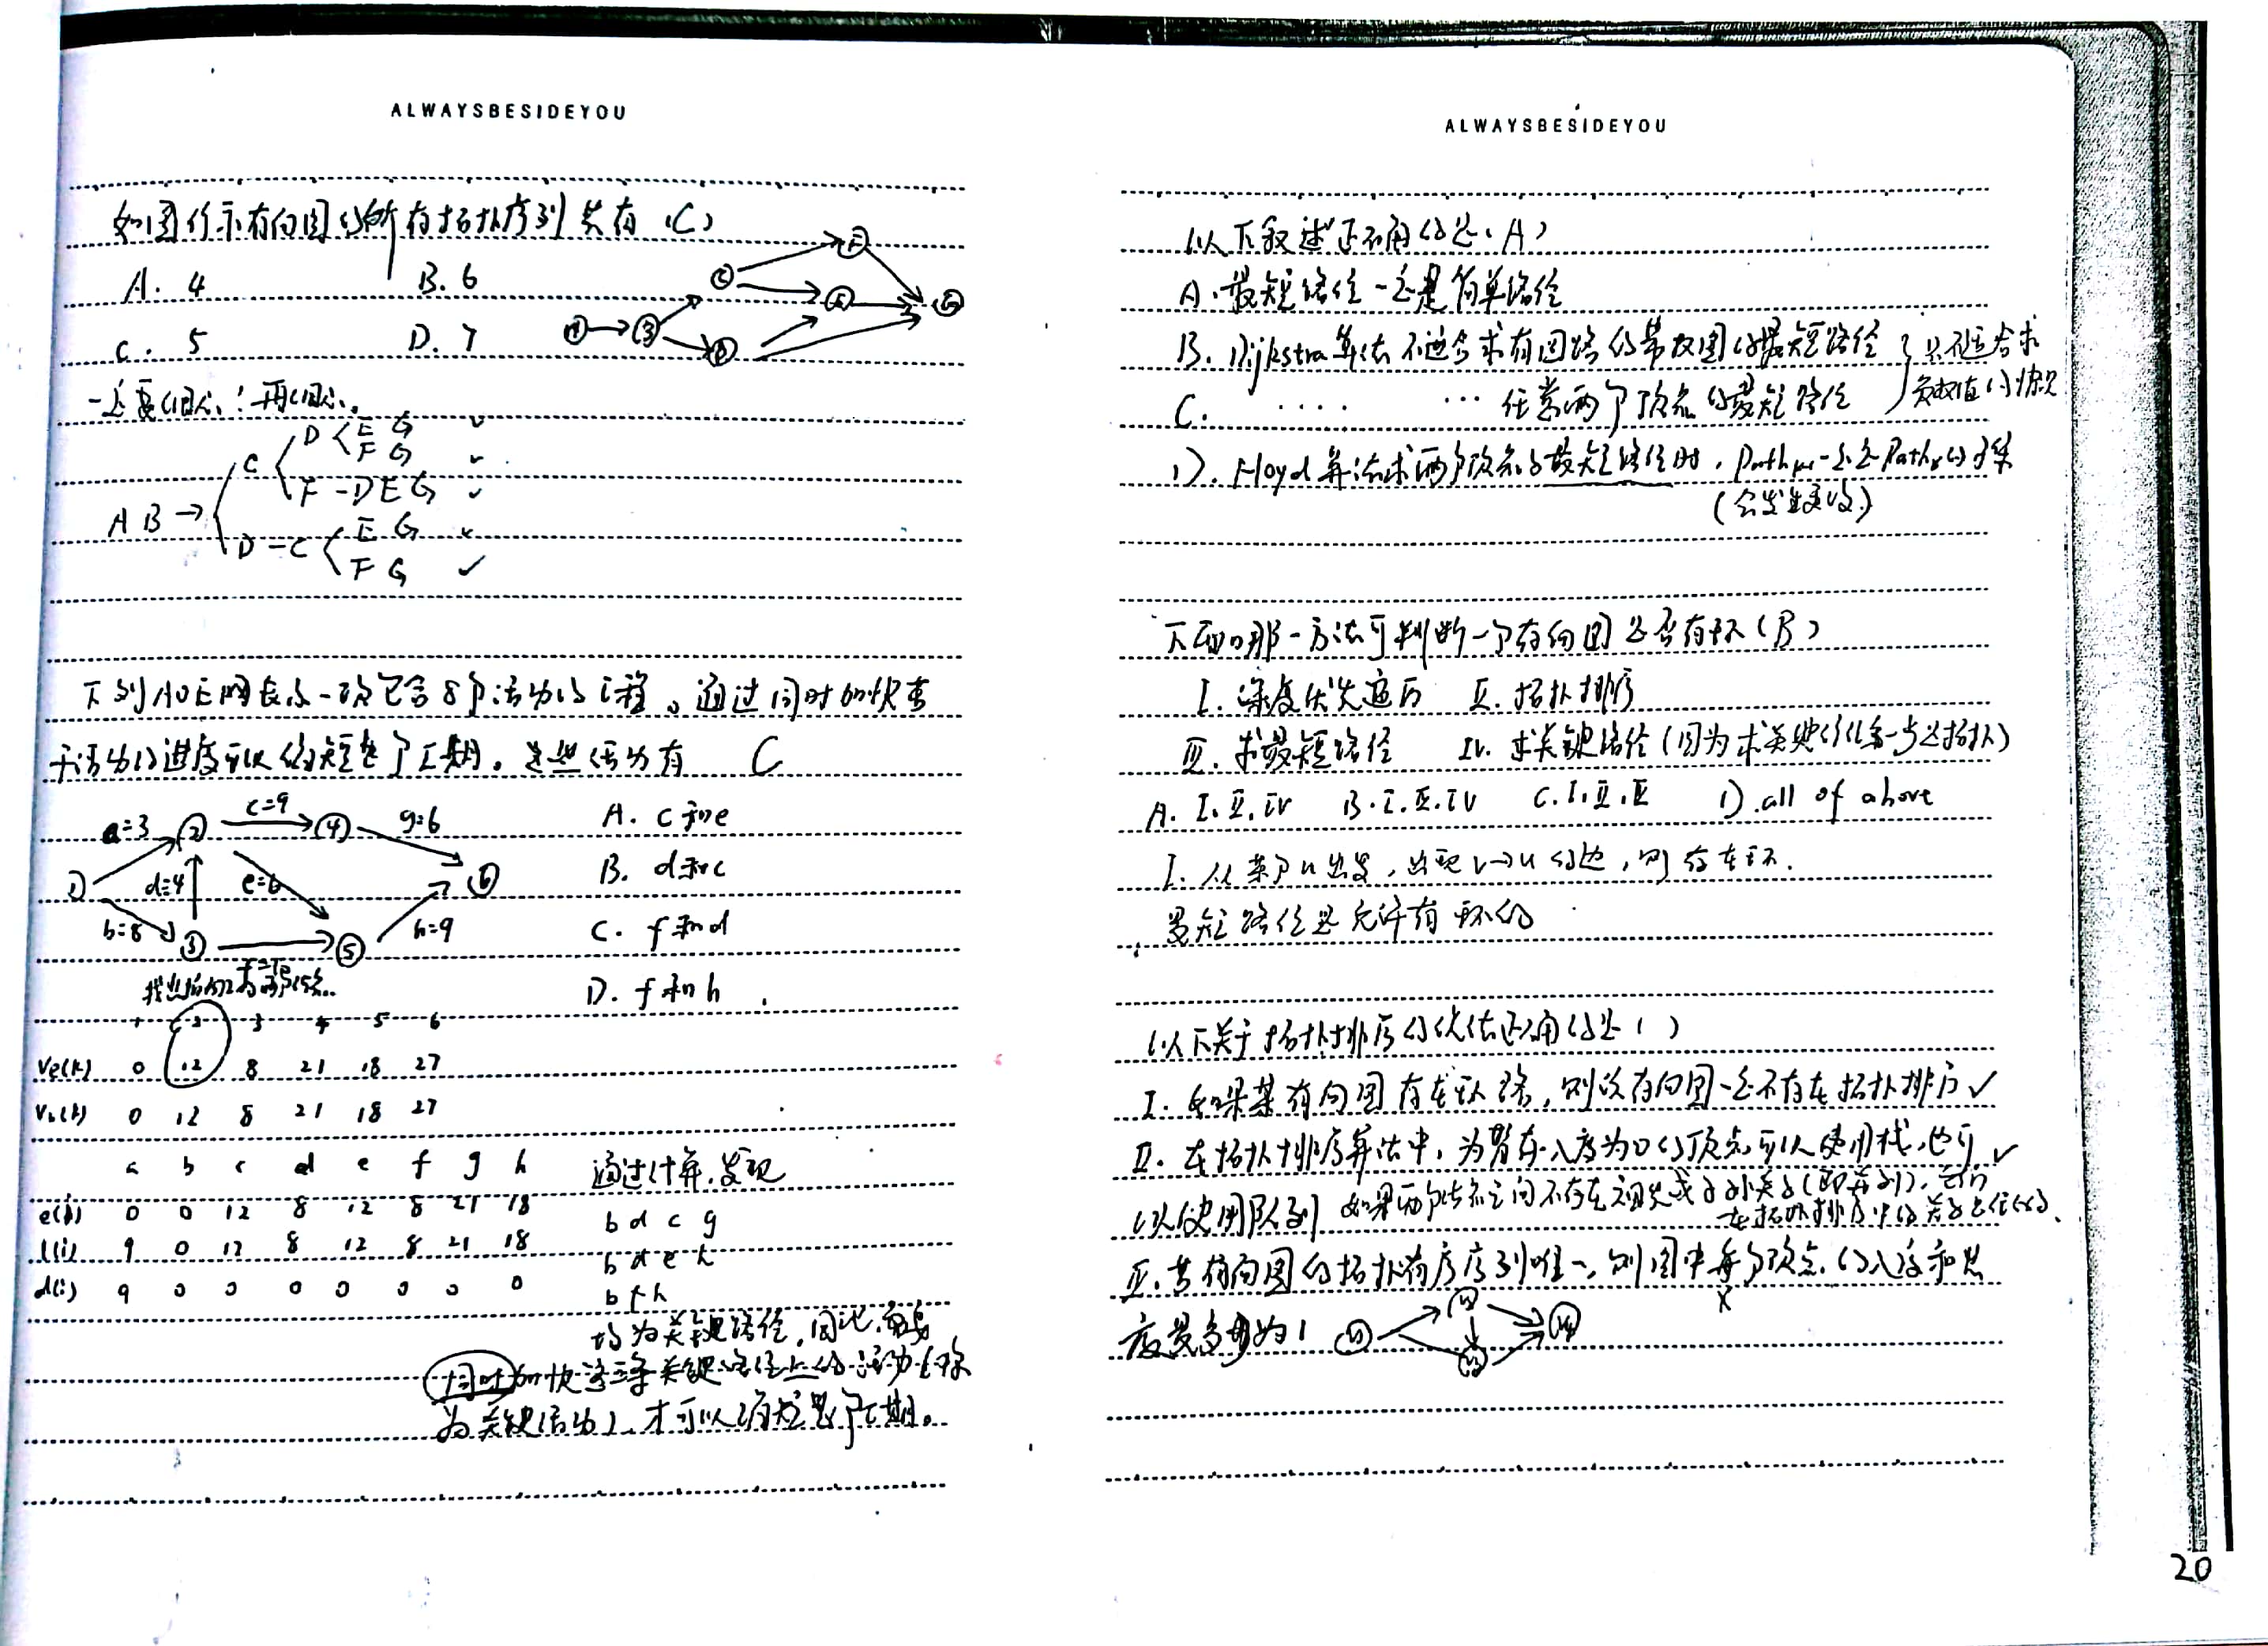 ALWAYSBESIDEYOU
如图所示有向图的所有拓扑序列共有 (C)
A. 4 B. 6
C. 5 D. 7
一定要细心!再细心.
A B → C D E G
F G
F - D E G
D - C E G
F G
下列AOE网表示一项包含8个活动的工程。通过同时加快若
干活动的进度可以缩短整个工期。这些活动有 C
a=3 ② c=9 ④ g=6 A. c和e
① d=4 e=6 ⑥ B. d和c
b=8 ③ ⑤ h=9 C. f和d
D. f和h
1 2 3 4 5 6
Ve(k) 0 12 8 21 18 27
Vl(k) 0 12 8 21 18 27
a b c d e f g h 通过计算,发现
e(i) 0 0 12 8 12 8 21 18 b d c g
l(i) 9 0 12 8 12 8 21 18 b d e h
d(i) 9 0 0 0 0 0 0 0 b f h
均为关键路径,因此
同时加快这三条关键路径上的活动
为关键活动),才可以缩短整个工期。
ALWAYSBESIDEYOU
以下叙述正确的是(A)
A. 最短路径一定是简单路径
B. Dijkstra算法不适合求有回路的带权图的最短路径 } 只不适合求
C. .... ... 任意两个顶点的最短路径 负权值的情况
D. Floyd算法求两个顶点的最短路径时,Path k-1一定是Path k的子集
(会发生更改)
下面哪一方法可判断一个有向图是否有环(B)
I. 深度优先遍历 II. 拓扑排序
III. 求最短路径 IV. 求关键路径(因为求关键路径第一步是拓扑)
A. I. II. IV B. I. II. IV C. I. II. III D. all of above
I. 从某个u出发,出现v→u的边,则存在环.
最短路径是允许有环的
以下关于拓扑排序的说法正确的是( )
I. 如果某有向图存在环路,则该有向图一定不存在拓扑排序 ✓
II. 在拓扑排序算法中,为暂存入度为0的顶点可以使用栈,也可 ✓
以使用队列 如果两个结点之间不存在祖先或子孙关系(即并列),它们
在拓扑排序中的关系是任意的.
III. 若有向图的拓扑有序序列唯一,则图中每个顶点的入度和出
度最多为1 ×
20